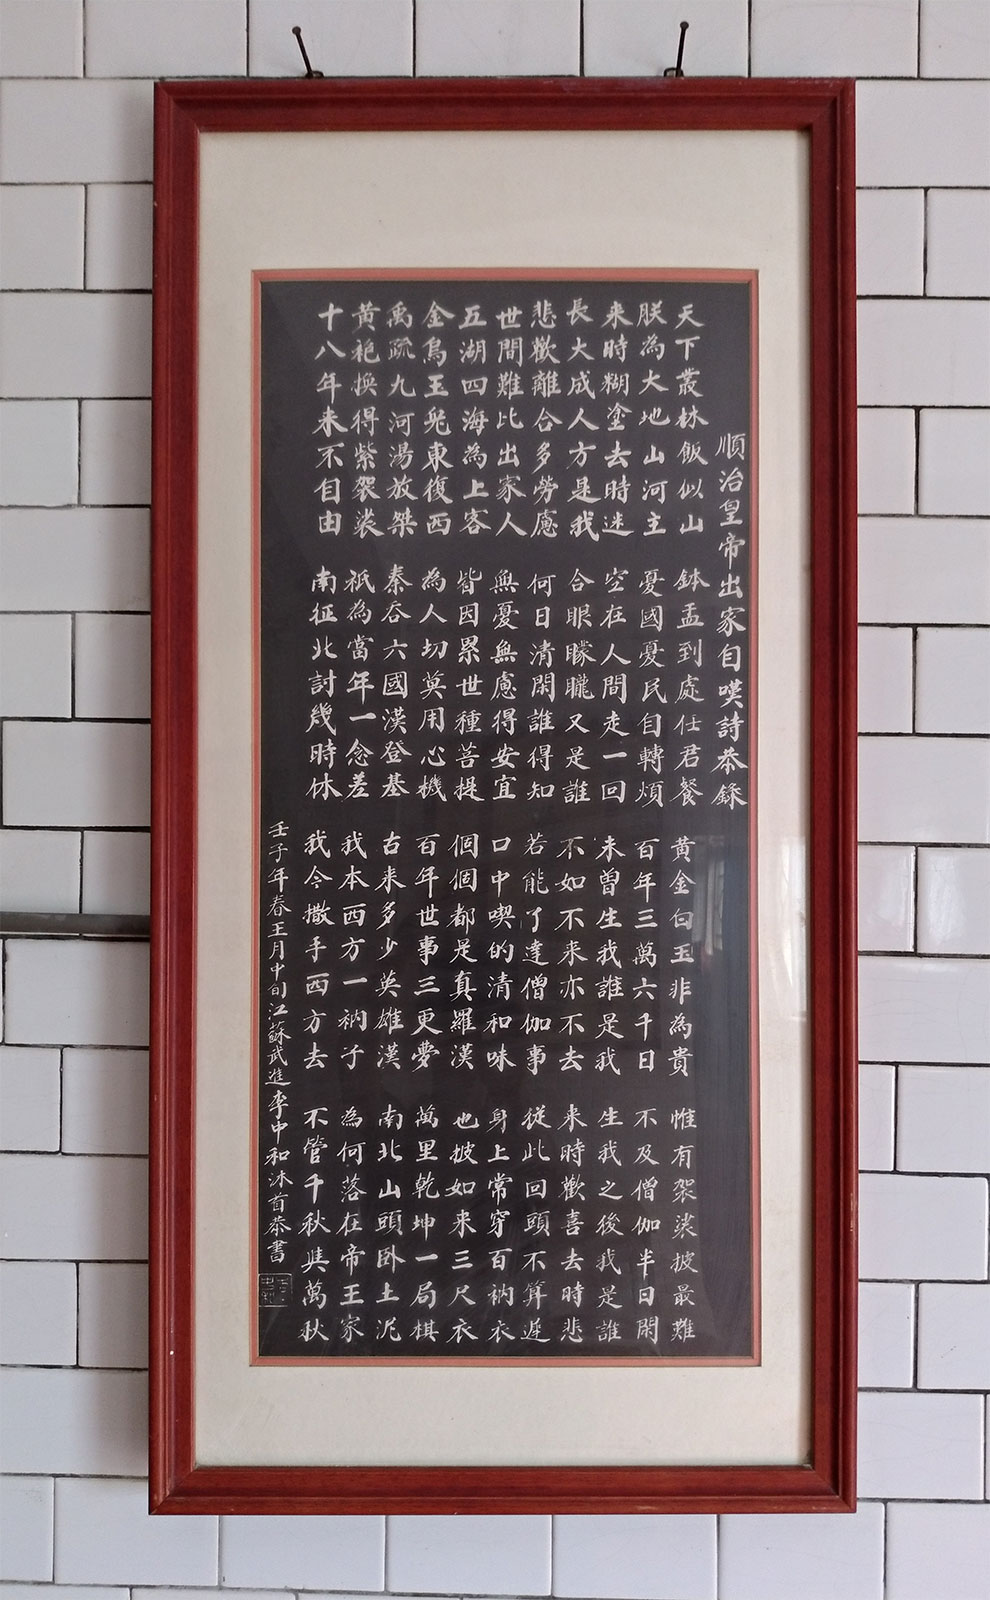 順治皇帝出家自嘆詩恭錄
天下叢林飯似山 鉢盂到處任君餐 黃金白玉非為貴 惟有袈裟披最難
朕為大地山河主 憂國憂民自轉煩 百年三萬六千日 不及僧伽半日閑
来時糊塗去時迷 空在人間走一回 未曾生我誰是我 生我之後我是誰
長大成人方是我 合眼矇矓又是誰 不如不来亦不去 来時歡喜去時悲
悲歡離合多勞慮 何日清閑誰得知 若能了達僧伽事 從此回頭不算遲
世間難比出家人 無憂無慮得安宜 口中喫的清和味 身上常穿百衲衣
五湖四海為上客 皆因累世種菩提 個個都是真羅漢 也披如来三尺衣
金烏玉兔東復西 為人切莫用心機 百年世事三更夢 萬里乾坤一局棋
禹疏九河湯放桀 秦吞六國漢登基 古来多少英雄漢 南北山頭卧土泥
黃袍換得紫袈裟 祇為當年一念差 我本西方一衲子 為何落在帝王家
十八年来不自由 南征北討幾時休 我今撒手西方去 不管千秋與萬秋
壬子年春王月中旬江蘇武進李中和沐首恭書